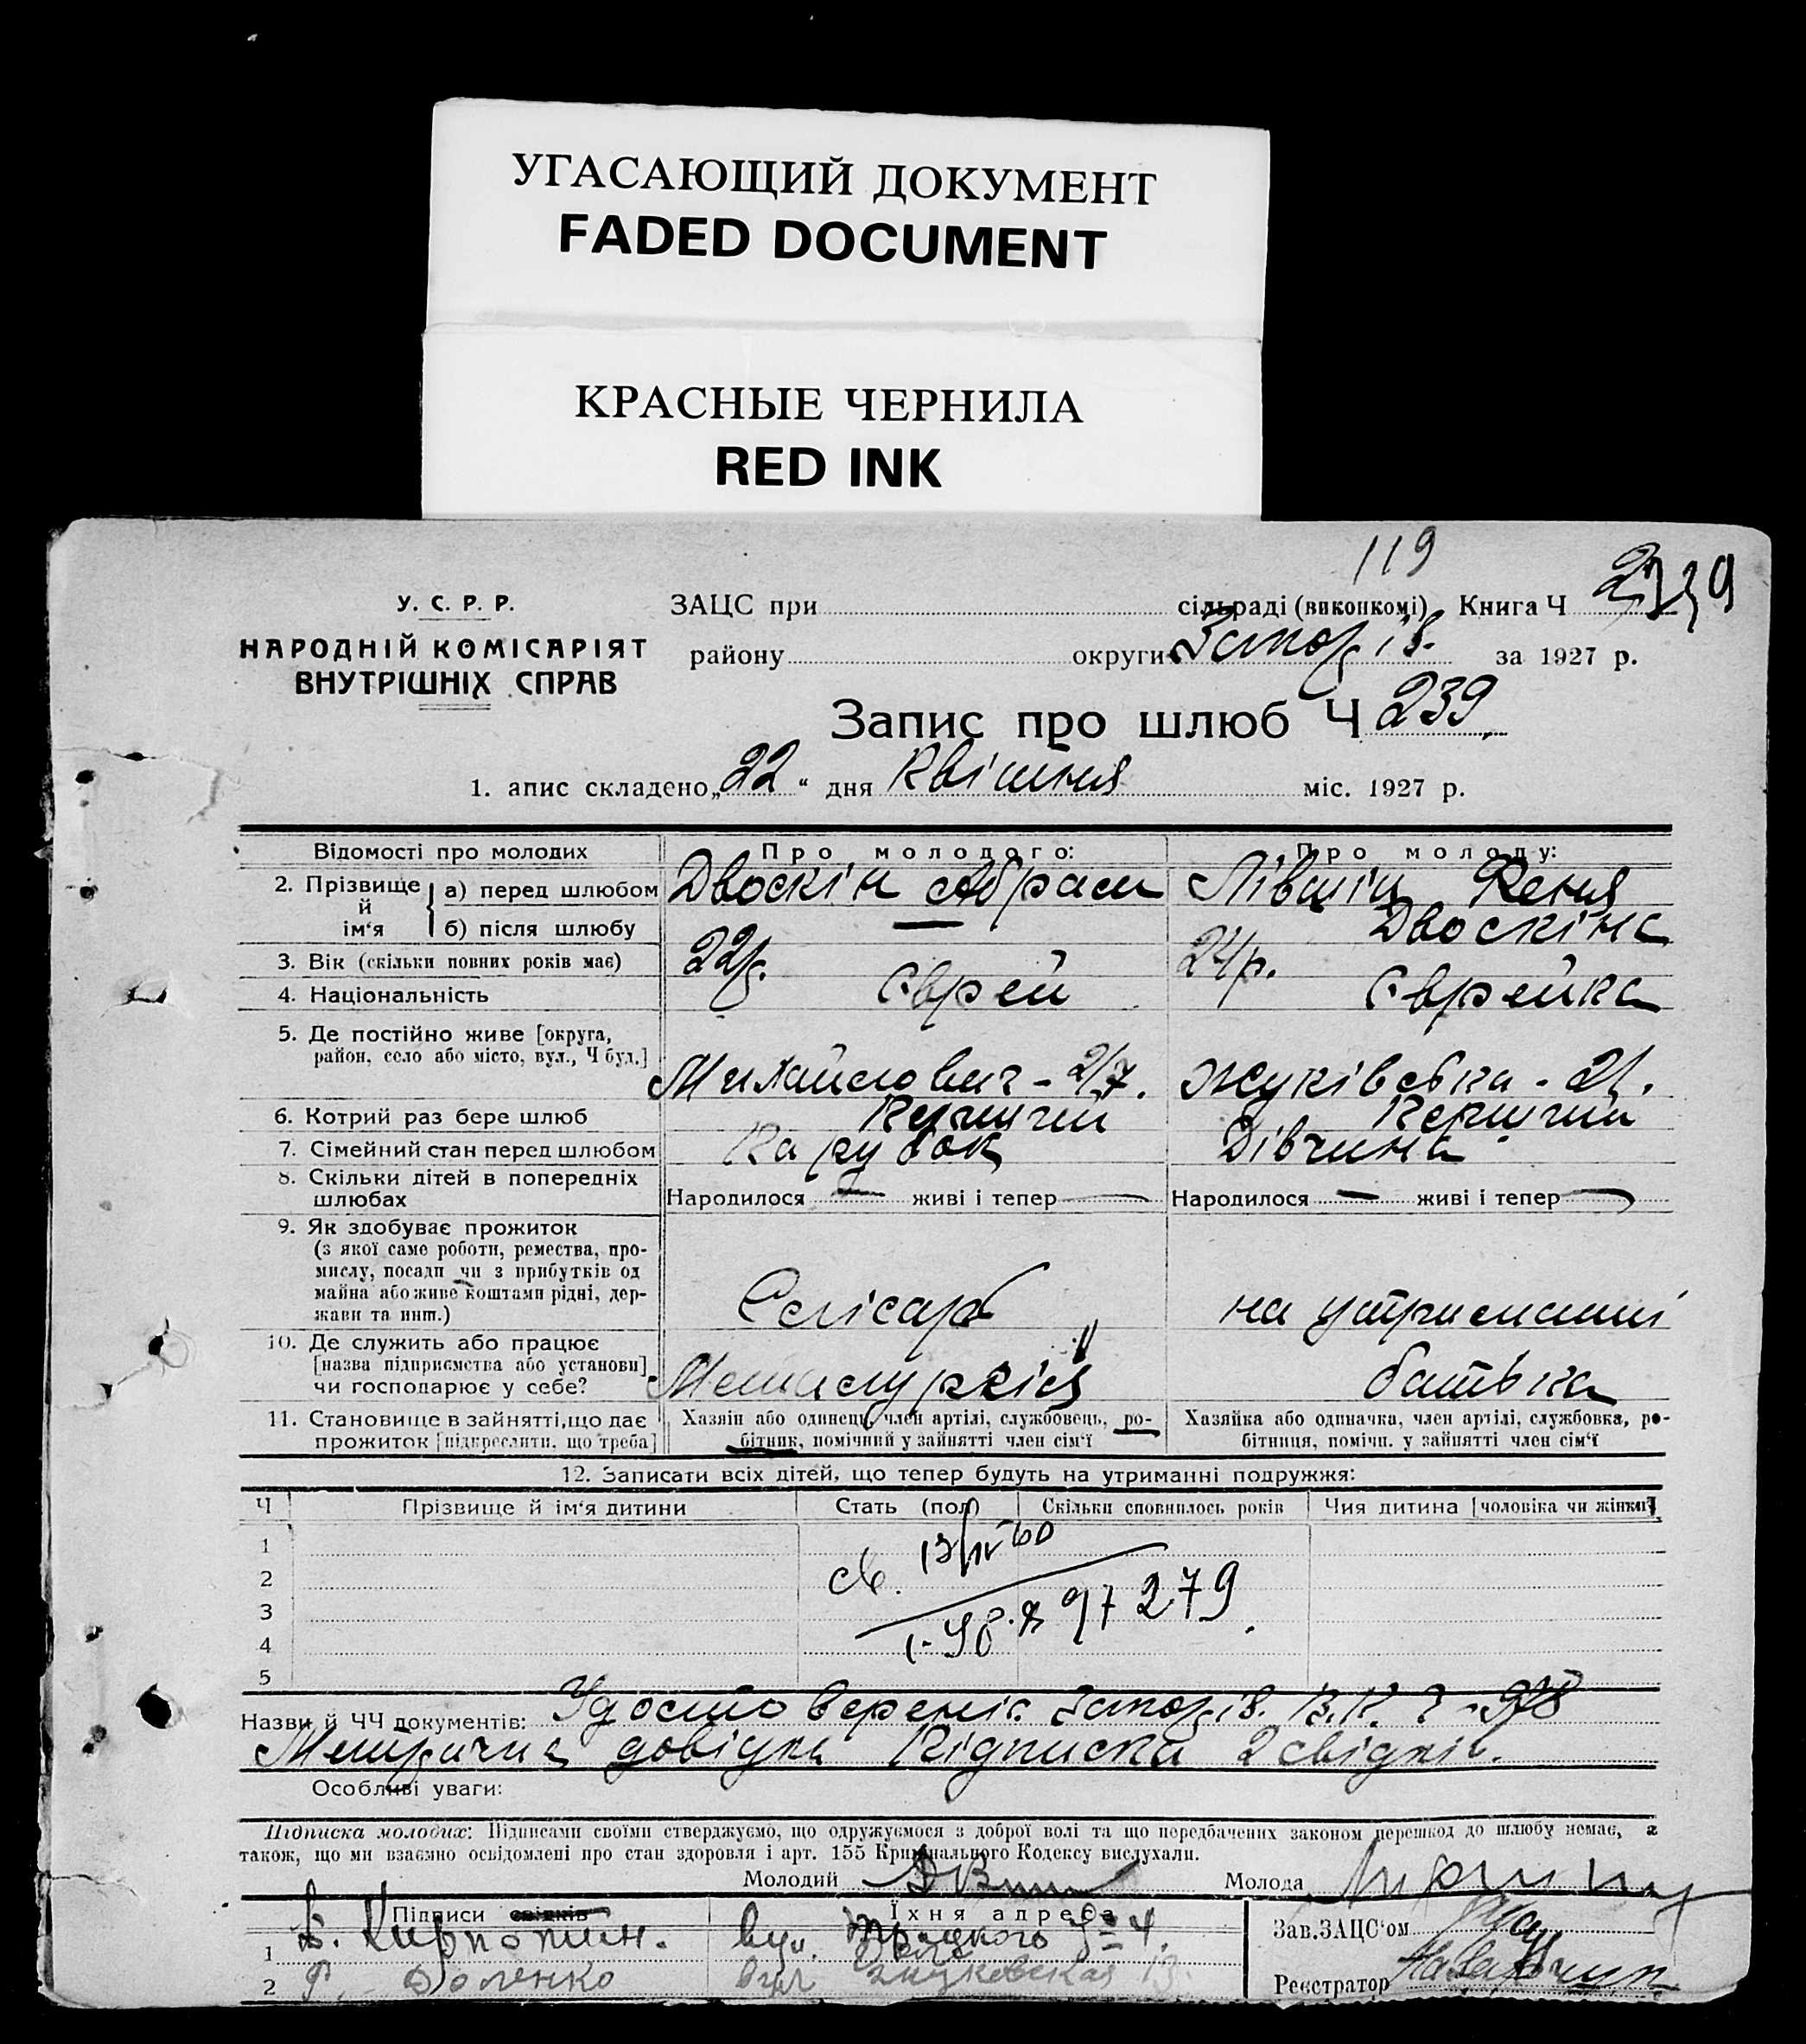 УГАСАЮЩИЙ ДОКУМЕНТ
FADED DOCUMENT
КРАСНЫЕ ЧЕРНИЛА
RED INK
119
У. С. Р. Р.
НАРОДНІЙ КОМІСАРІЯТ
ВНУТРІШНІХ СПРАВ
ЗАЦС при сільраді (виконкомі) Книга Ч
району округи Запоріз. за 1927 р.
Запис про шлюб Ч 239
1. апис складено „22“ дня Квітня міс. 1927 р.
Відомості про молодих Про молодого: Про молоду:
2. Прізвище й ім‘я
а) перед шлюбом Двоскін Абрам Лівшіц Феня
б) після шлюбу — Двоскіна
3. Вік (скільки повних років має) 22р. 21р.
4. Національність Єврей Єврейка
5. Де постійно живе [округа,
район, село або місто, вул., Ч буд.] Михайлович - 2/7. Жуківська - 21.
6. Котрий раз бере шлюб Перший Перший
7. Сімейний стан перед шлюбом Парубок Дівчина
8. Скільки дітей в попередніх
шлюбах Народилося — живі і тепер — Народилося — живі і тепер —
9. Як здобуває прожиток
(з якої саме роботи, ремества, про-
мислу, посади чи з прибутків од
майна або живе коштами рідні, дер-
жави та инш.) Слісарь на утриманні
10. Де служить або працює
[назва підприємства або установи]
чи господарює у себе? Металургія батька
11. Становище в зайнятті, що дає
прожиток [підкреслити, що треба]
Хазяін або одинець, член артілі, службовець, ро-
бітник, помічний у зайнятті член сім‘ї
Хазяйка або одиначка, член артілі, службовка, ро-
бітниця, помічн. у зайнятті член сім‘ї
12. Записати всіх дітей, що тепер будуть на утриманні подружжя:
Ч Прізвище й ім‘я дитини Стать (пол) Скільки сповнилось років Чия дитина [чоловіка чи жінки]
1
2
3
4
5
св. 13/IV 60
97279.
Назви й ЧЧ документів: Удостовереніє Запоріз. В.К. Ч - 978
Метрична довідка Підписка 2 свідків.
Особливі уваги:
Підписка молодих: Підписами своїми стверджуємо, що одружуємося з доброї волі та що передбачених законом перешкод до шлюбу немає, а
також, що ми взаємно освідомлені про стан здоровля і арт. 155 Кримінального Кодексу вислухали.
Молодий Молода
Підписи свідків Їхня адреса
1 Кирпотин. вул. Троцкого 4.
2 Доленко вул Жуковская 13.
Зав. ЗАЦС‘ом
Реєстратор